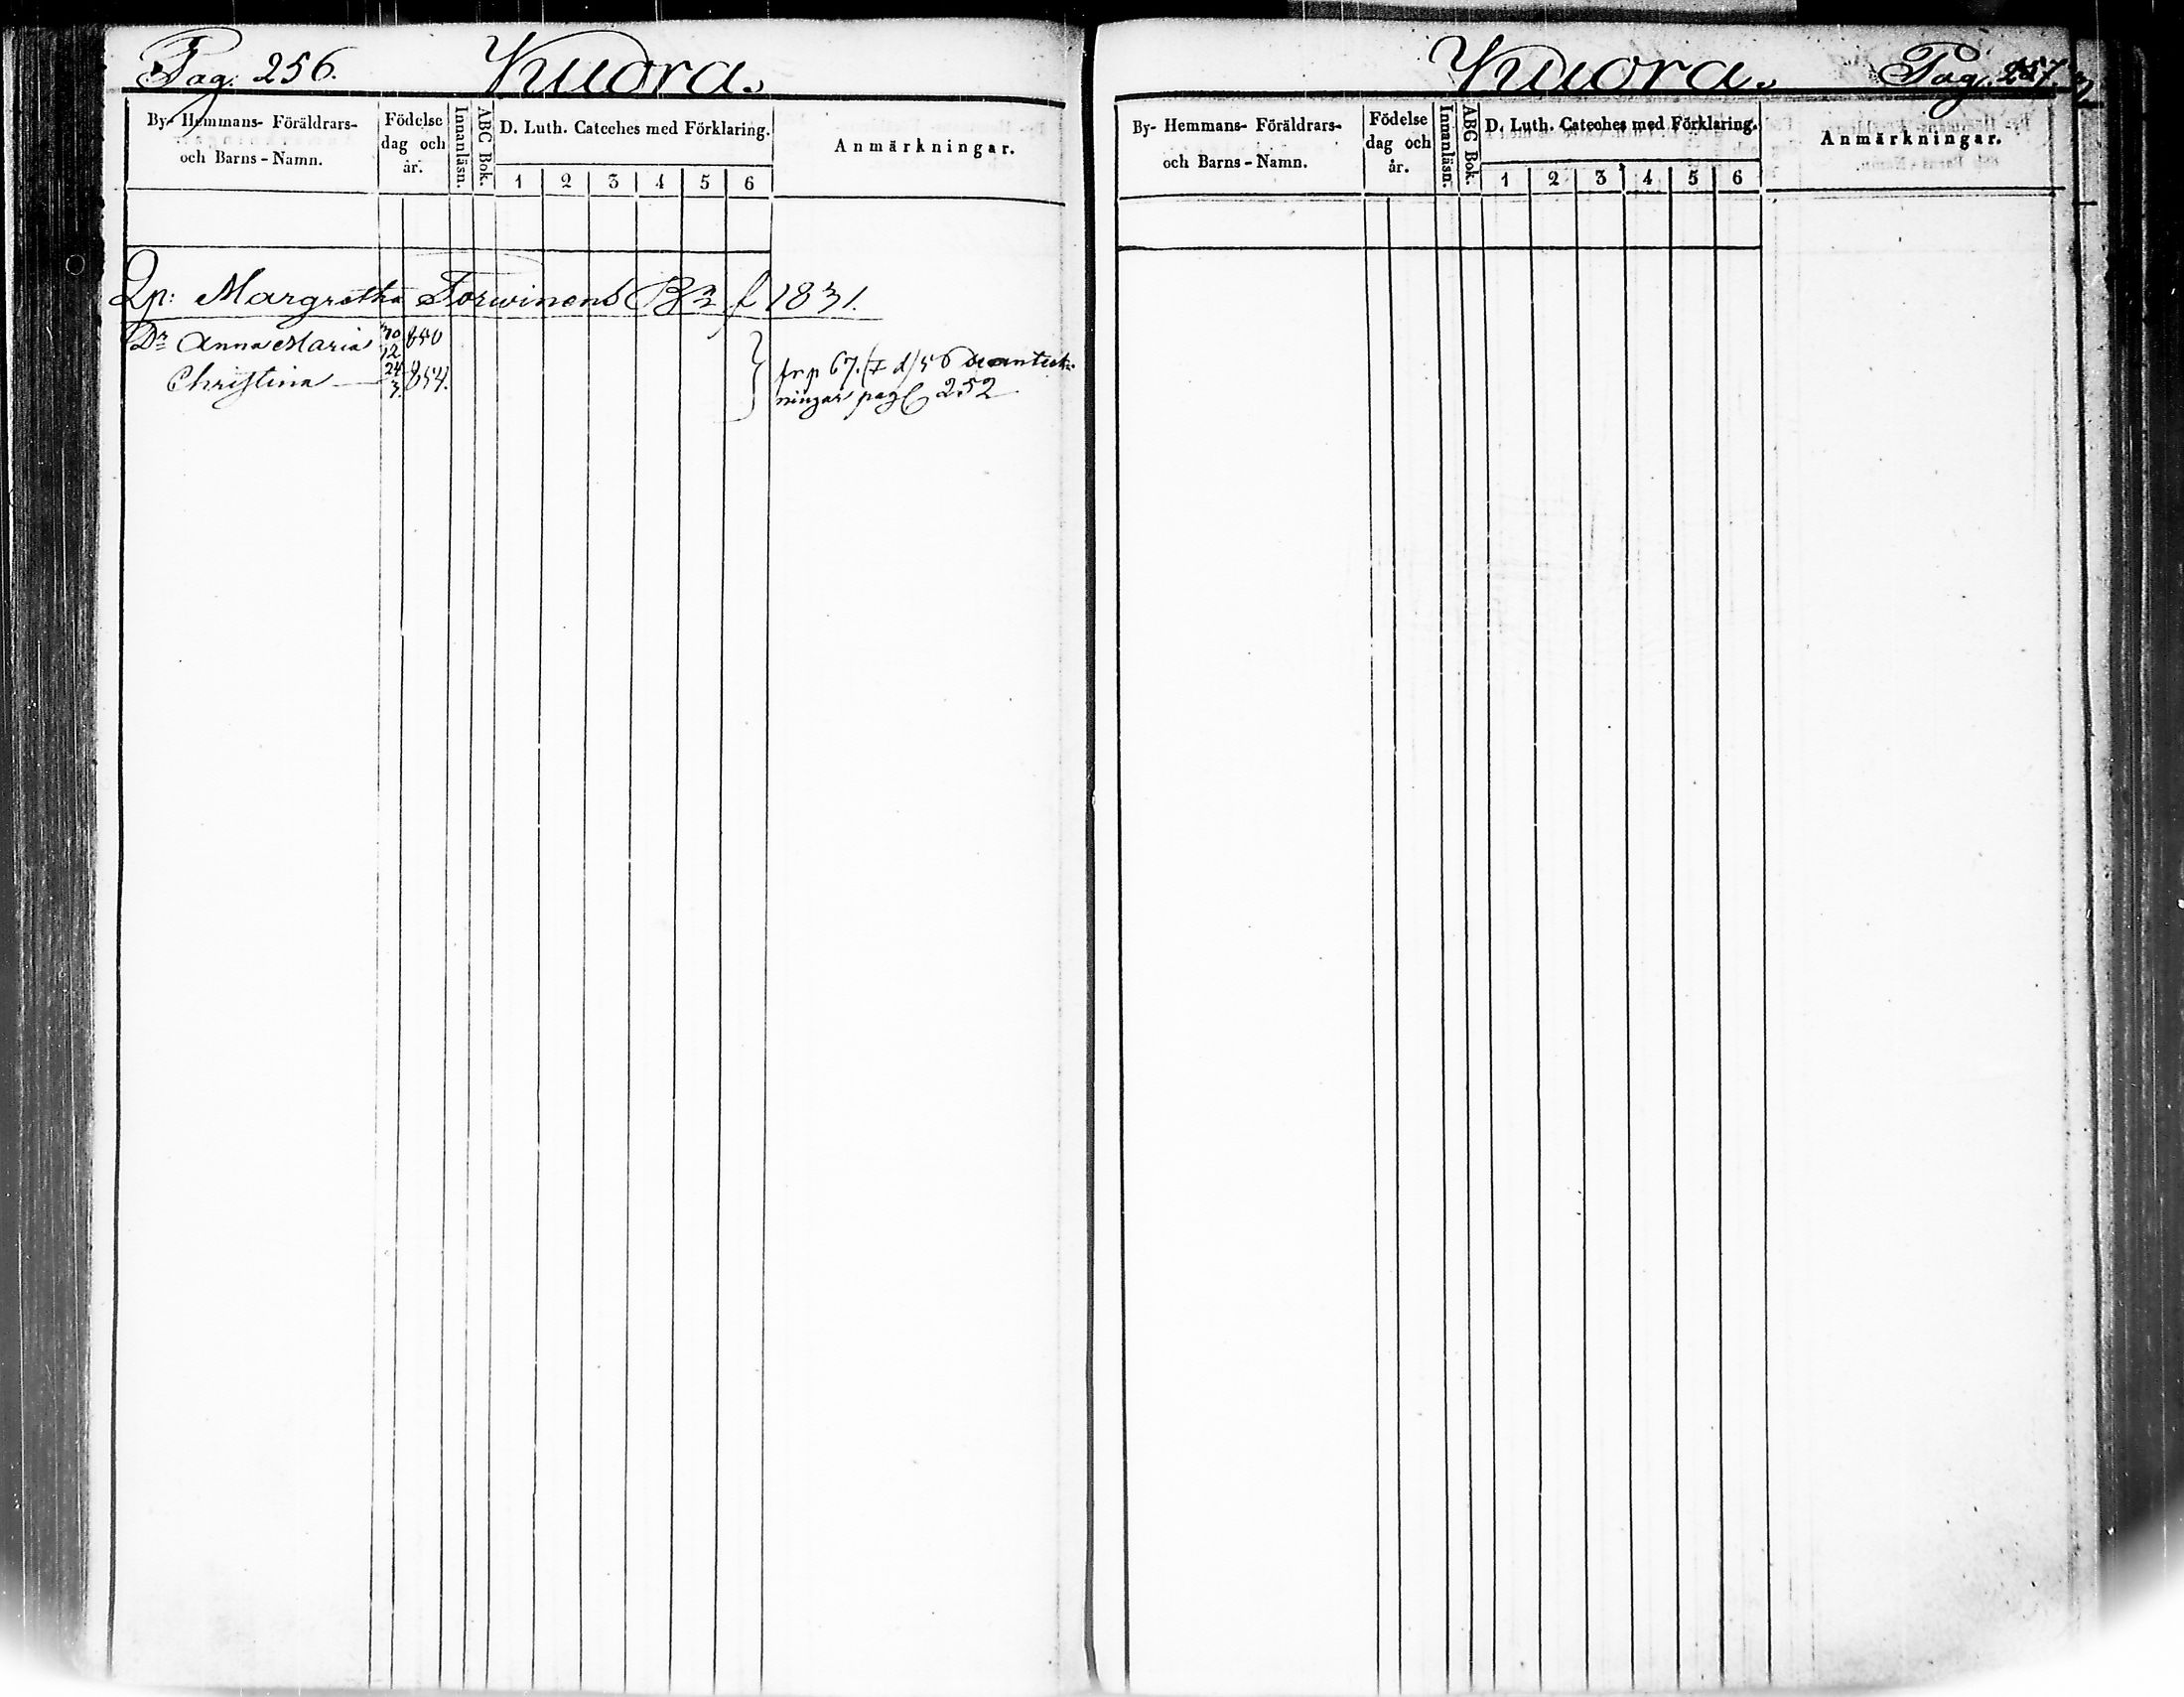 Pag. 256.
Kuora.
By- Hemmans- Föräldrars-
och Barns-Namn.
Födelse
dag och
år.
Innanläsn.
ABC Bok.
D. Luth. Cateches med Förklaring.
1 2 3 4 5 6
Anmärkningar.
Margretha Torwinens B 3 f 1831.
Dr Anna Maria 30/12 850
Christina 24/3. 854.
fr p 67. (I d) 56 se anteck-
ningar pag 252
Kuora.
Pag. 257
By- Hemmans- Föräldrars-
och Barns-Namn.
Födelse
dag och
år.
Innanläsn.
ABC Bok.
D. Luth. Cateches med Förklaring.
1 2 3 4 5 6
Anmärkningar.